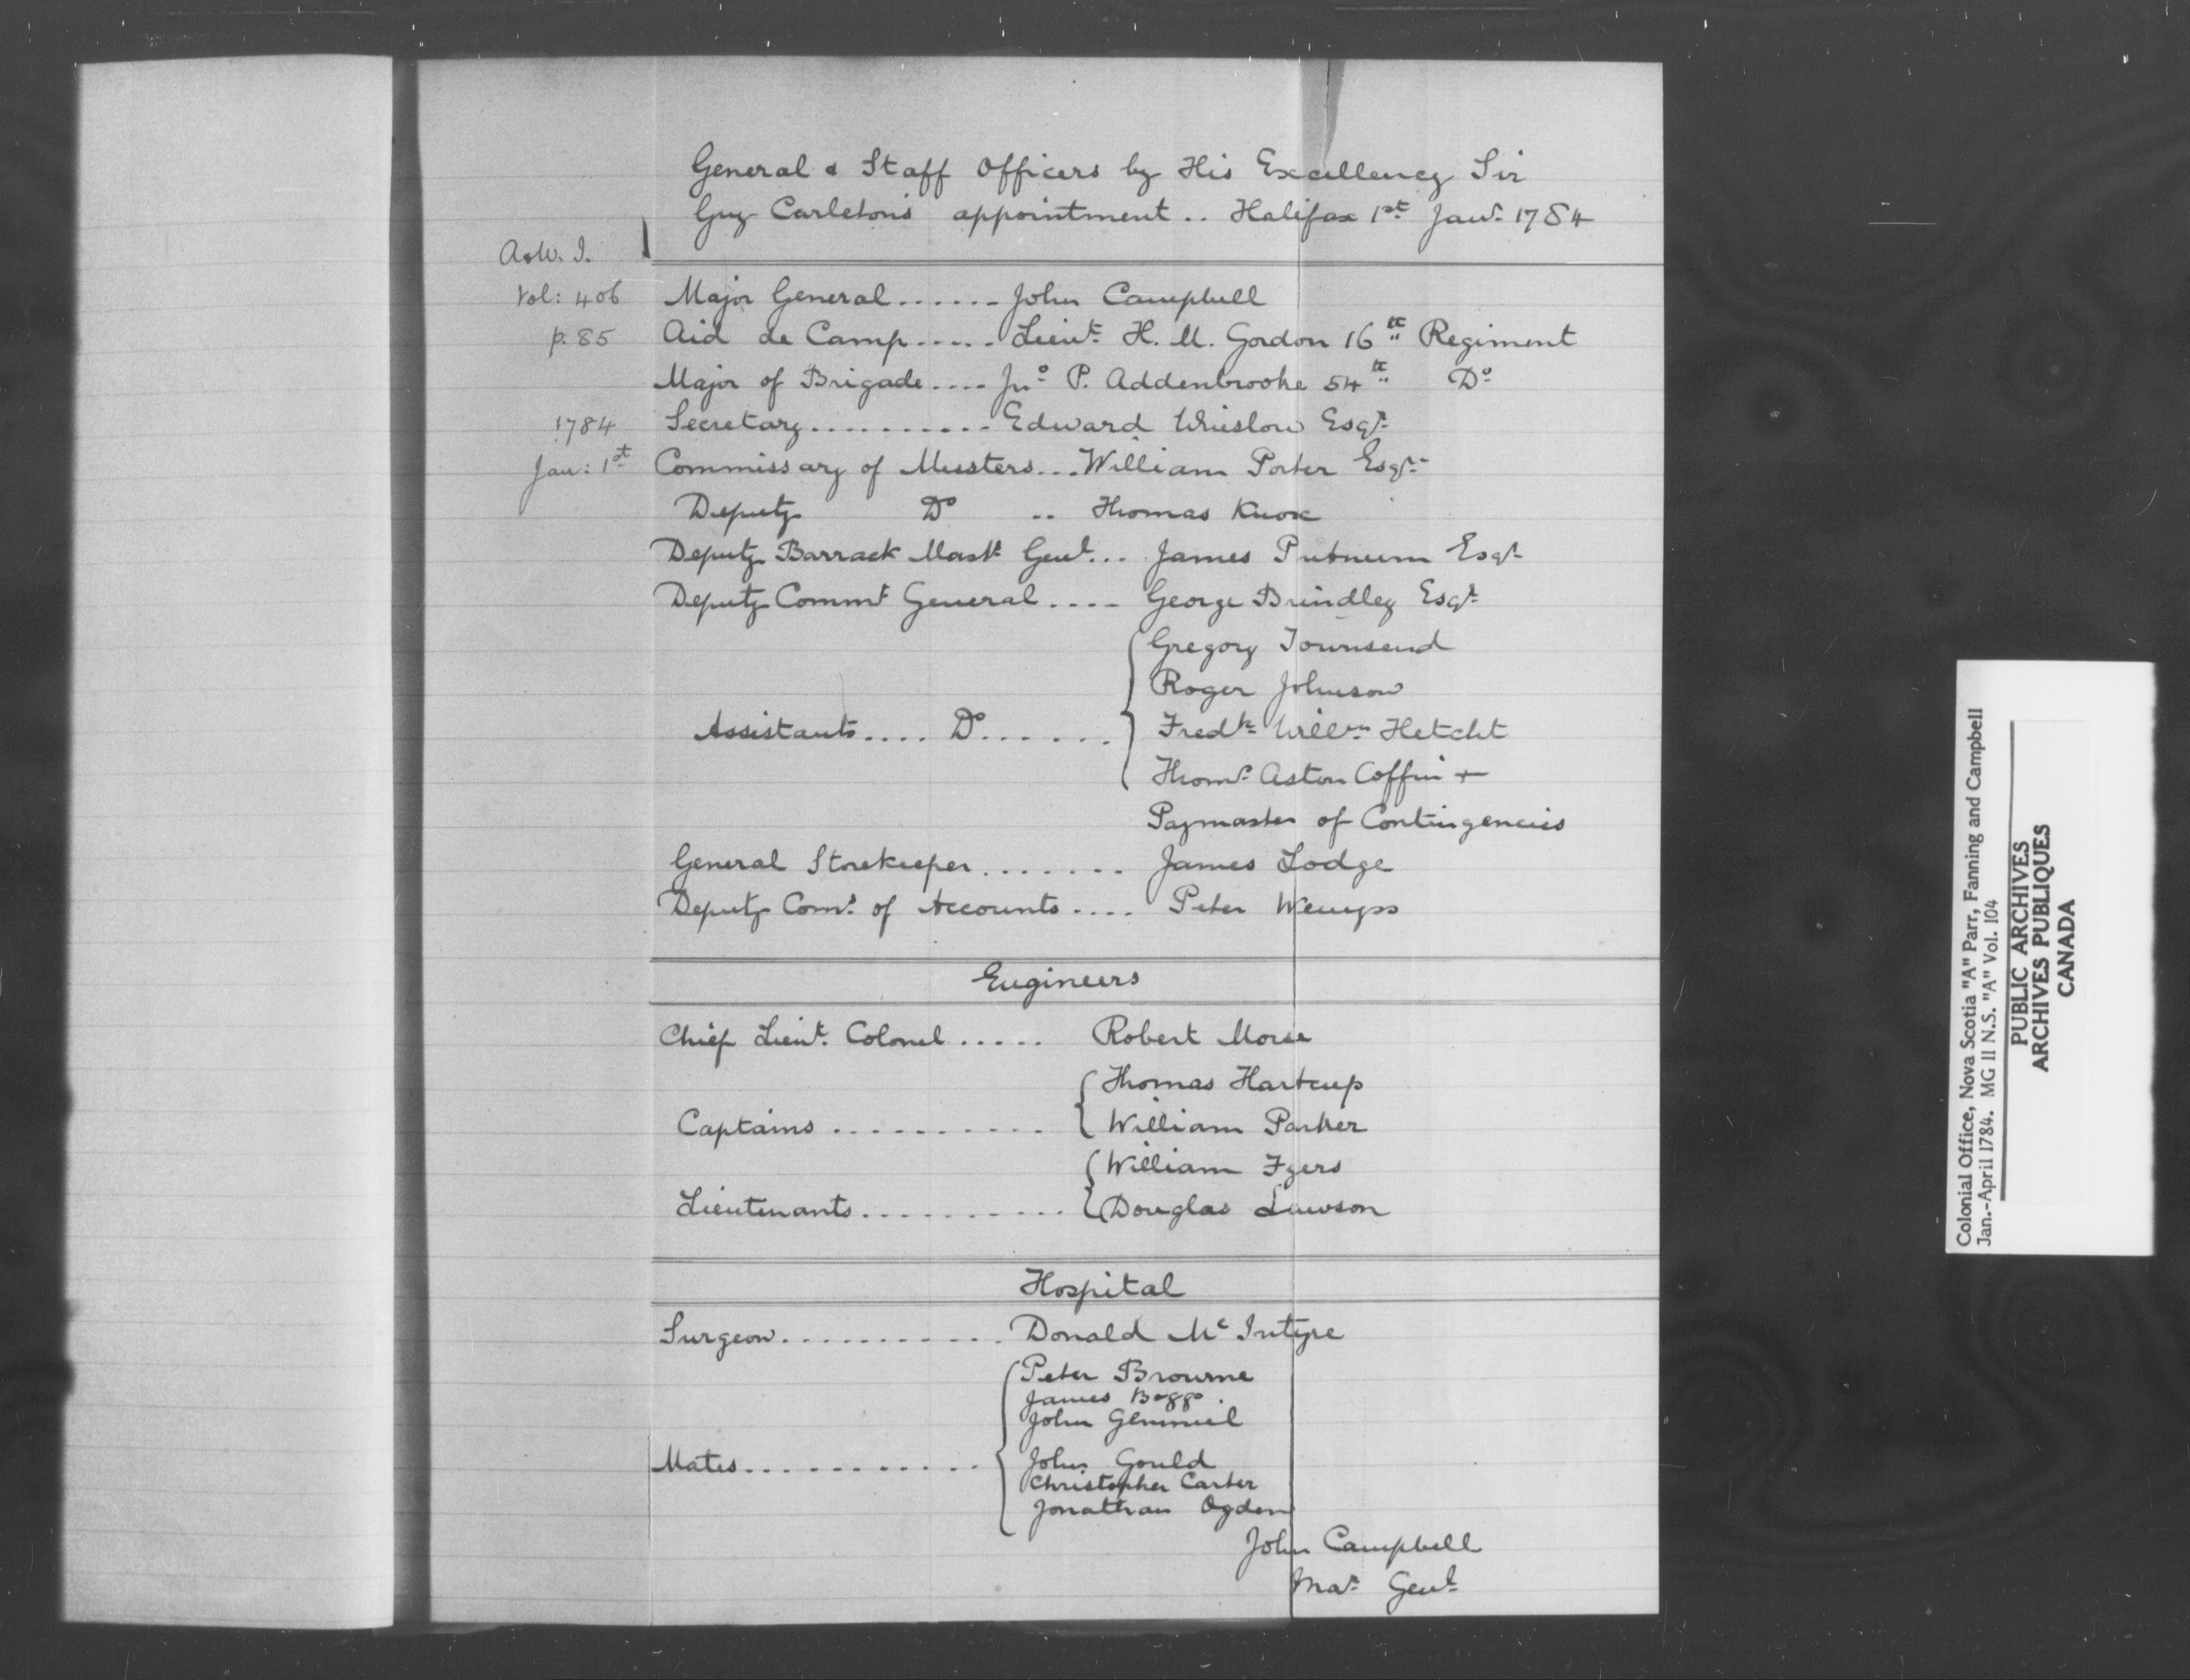 General & Staff Officers by His Excellency Sir
Guy Carleton's appointment .. Halifax 1st Jany 1784
A & W. I.
Vol: 406
p. 85
1784
Jan: 1st
Major General ...... John Campbell
Aid de Camp ..... Lieut. H. M. Gordon 16th Regiment
Major of Brigade .... Jno. P. Addenbrooke 54th Do.
Secretary .......... Edward Winslow Esqr.
Commissary of Musters ... William Porter Esqr.
Deputy Do .. Thomas Knox
Deputy Barrack Mastr Genl. ... James Putnum Esqr.
Deputy Commy General .... George Brindley Esqr.
Gregory Townsend
Roger Johnson
Assistants .... Do ...... Fredk. Willm. Hetcht
Thoms. Aston Coffin +
Paymaster of Contingencies
General Storekeeper ....... James Lodge
Deputy Comy. of Accounts .... Peter Wemyss
Engineers
Chief Lieut. Colonel ..... Robert Morse
Thomas Hartcup
Captains .......... William Parker
William Fyers
Lieutenants .......... Douglas Lawson
Hospital
Surgeon ........... Donald Mc Intyre
Peter Browne
James Boggs.
John Gemmiel
Mates ........... John Gould
Christopher Carter
Jonathan Ogden
John Campbell
Mar. Genl.
Colonial Office, Nova Scotia "A" Parr, Fanning and Campbell
Jan.-April 1784. MG 11 N.S. "A" Vol. 104
PUBLIC ARCHIVES
ARCHIVES PUBLIQUES
CANADA